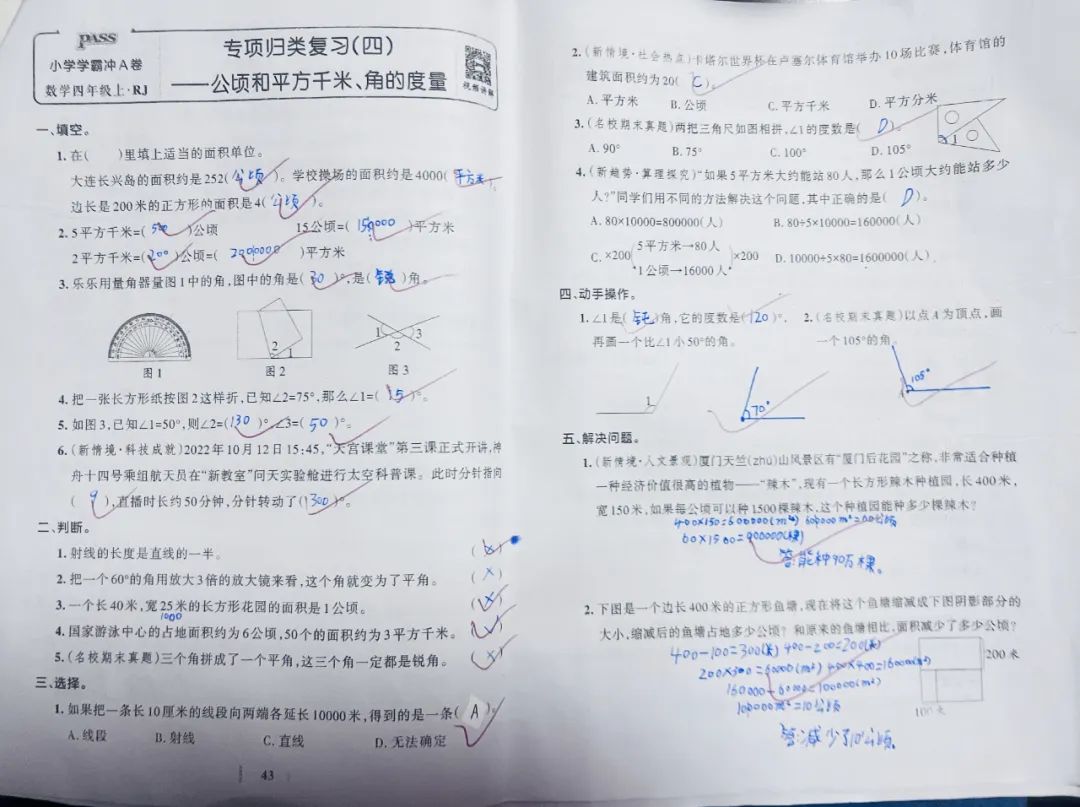 PASS
小学学霸冲A卷
数学四年级上·RJ
专项归类复习(四)
——公顷和平方千米、角的度量
视频讲解
一、填空。
1.在(　　)里填上适当的面积单位。
大连长兴岛的面积约是252(公顷)。学校操场的面积约是4000(平方米)。
边长是200米的正方形的面积是4(公顷)。
2.5平方千米=(500)公顷　15公顷=(150000)平方米
2平方千米=(200)公顷=(2000000)平方米
3.乐乐用量角器量图1中的角,图中的角是(30)°,是(锐)角。
2 1
1 3
2
图1　图2　图3
4.把一张长方形纸按图2这样折,已知∠2=75°,那么∠1=(15)°。
5.如图3,已知∠1=50°,则∠2=(130)°,∠3=(50)°。
6.(新情境·科技成就)2022年10月12日15:45,“天宫课堂”第三课正式开讲,神
舟十四号乘组航天员在“新教室”问天实验舱进行太空科普课。此时分针指向
(9),直播时长约50分钟,分针转动了(300)°。
二、判断。
1.射线的长度是直线的一半。(×)
2.把一个60°的角用放大3倍的放大镜来看,这个角就变为了平角。(×)
3.一个长40米,宽25米的长方形花园的面积是1公顷。(×)
1000
4.国家游泳中心的占地面积约为6公顷,50个的面积约为3平方千米。(√)
5.(名校期末真题)三个角拼成了一个平角,这三个角一定都是锐角。(×)
三、选择。
1.如果把一条长10厘米的线段向两端各延长10000米,得到的是一条(A)。
A.线段　B.射线　C.直线　D.无法确定
43
2.(新情境·社会热点)卡塔尔世界杯在卢塞尔体育馆举办10场比赛,体育馆的
建筑面积约为20(C)。
A.平方米　B.公顷　C.平方千米　D.平方分米
3.(名校期末真题)两把三角尺如图相拼,∠1的度数是(D)。
1
A.90°　B.75°　C.100°　D.105°
4.(新趋势·算理探究)“如果5平方米大约能站80人,那么1公顷大约能站多少
人?”同学们用不同的方法解决这个问题,其中正确的是(D)。
A.80×10000=800000(人)　B.80÷5×10000=160000(人)
C.×200(5平方米→80人
1公顷→16000人)×200　D.10000÷5×80=1600000(人)
四、动手操作。
1.∠1是(钝)角,它的度数是(120)°,　2.(名校期末真题)以点A为顶点,画
再画一个比∠1小50°的角。　一个105°的角。
1
70°
105°
A
五、解决问题。
1.(新情境·人文景观)厦门天竺(zhú)山风景区有“厦门后花园”之称,非常适合种植
一种经济价值很高的植物——“辣木”,现有一个长方形辣木种植园,长400米,
宽150米,如果每公顷可以种1500棵辣木,这个种植园能种多少棵辣木?
400×150=600000(m²) 600000m²=60公顷
60×1500=900000(棵)
答:能种90万棵。
2.下图是一个边长400米的正方形鱼塘,现在将这个鱼塘缩减成下图阴影部分的
大小,缩减后的鱼塘占地多少公顷?和原来的鱼塘相比,面积减少了多少公顷?
400-100=300(米) 400-200=200(米)
200×300=60000(m²) 400×400=160000(m²)
160000-60000=100000(m²)
100000m²=10公顷
答:减少了10公顷。
200米
100米